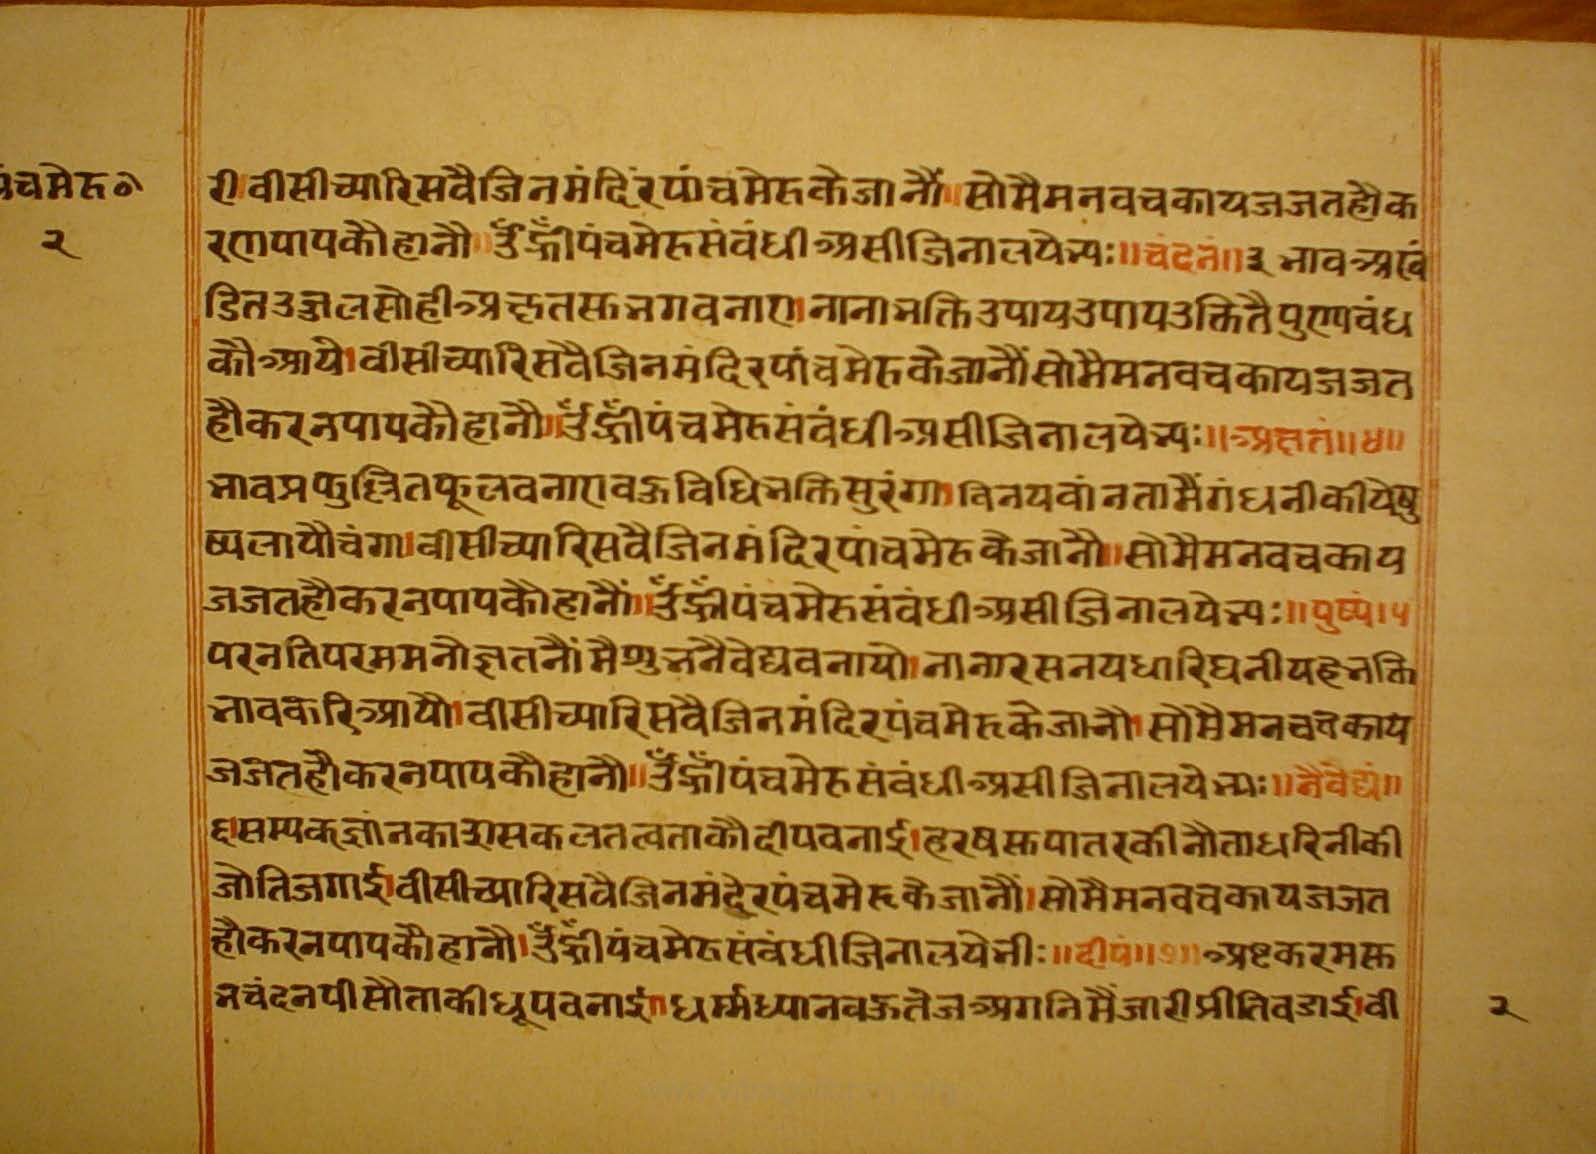 पंचमेरु०
२
री।वीसीच्यारिसवैजिनमंदिरपांचमेरुकेजानौं॥सोमैमनवचकायजजतहौक
रणपापकौहानौ॥ॐह्रीँपंचमेरुसंवंधीअसीजिनालयेभ्यः॥चंदनं॥३भावअखं
डितउज्जलसोहीअक्षतसुभगवनाए।नानाभक्तिउपायउपायउक्तितैपुण्यवंध
कौआये।वीसीच्यारिसवैजिनमंदिरपांचमेरुकेजानौंसोमैमनवचकायजजत
हौकरनपापकौहानौ॥ॐह्रीँपंचमेरुसंवंधीअसीजिनालयेभ्यः॥अक्षतं॥४॥
भावप्रफुल्लितफूलवनाएवऊविधिभक्तिसुरंगा।विनयवांनतामैंगंधनीकीयेपु
ष्पलायौचंगा।वीसीच्यारिसवैजिनमंदिरपांचमेरुकेजानौ॥सोमैमनवचकाय
जजतहौकरनपापकौहानौं॥ॐह्रीँपंचमेरुसंवंधीअसीजिनालयेभ्यः॥पुष्पं।५
परनतिपरममनोज्ञतनौंमैशुभनैवेद्यवनायो।नानारसनयधारिघनीयहभक्ति
भावकरिआयौ।वीसीच्यारिसवैजिनमंदिरपंचमेरूकेजानौ।सोमैमनचवकाय
जजतहौकरनपापकौहानौ॥ॐह्रीँपंचमेरुसंवंधीअसीजिनालयेभ्यः॥नैवेद्यं॥
६।सम्यकज्ञांनकाउासकलतत्वताकौदीपवनाई।हरषरूपातरकीनौताधरिनीकी
जोतिजगाई।वीसीच्यारिसवैजिनमंदेरपंचमेरूकेजानौं।सोमैमनवचकायजजत
हौकरनपापकौहानौ।ॐह्रीँपंचमेरुसंवंधीजिनालयेभीः॥दीपं॥७॥अष्टकरमरू
नचंदनपीसौताकीधूपवनाई॥धर्म्मध्यानवऊतेजअगनिमैंजारीप्रीतिवडाई।वी
२